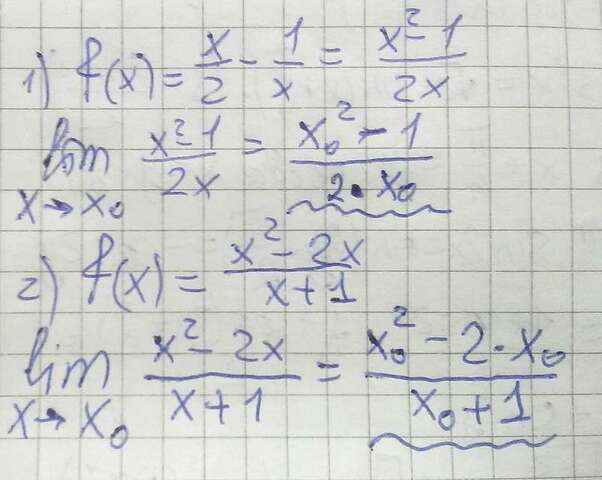 1) f(x) = x/2 - 1/x = (x² - 1)/(2x)
lim x→x₀ (x² - 1)/(2x) = (x₀² - 1)/(2·x₀)
2) f(x) = (x² - 2x)/(x + 1)
lim x→x₀ (x² - 2x)/(x + 1) = (x₀² - 2·x₀)/(x₀ + 1)